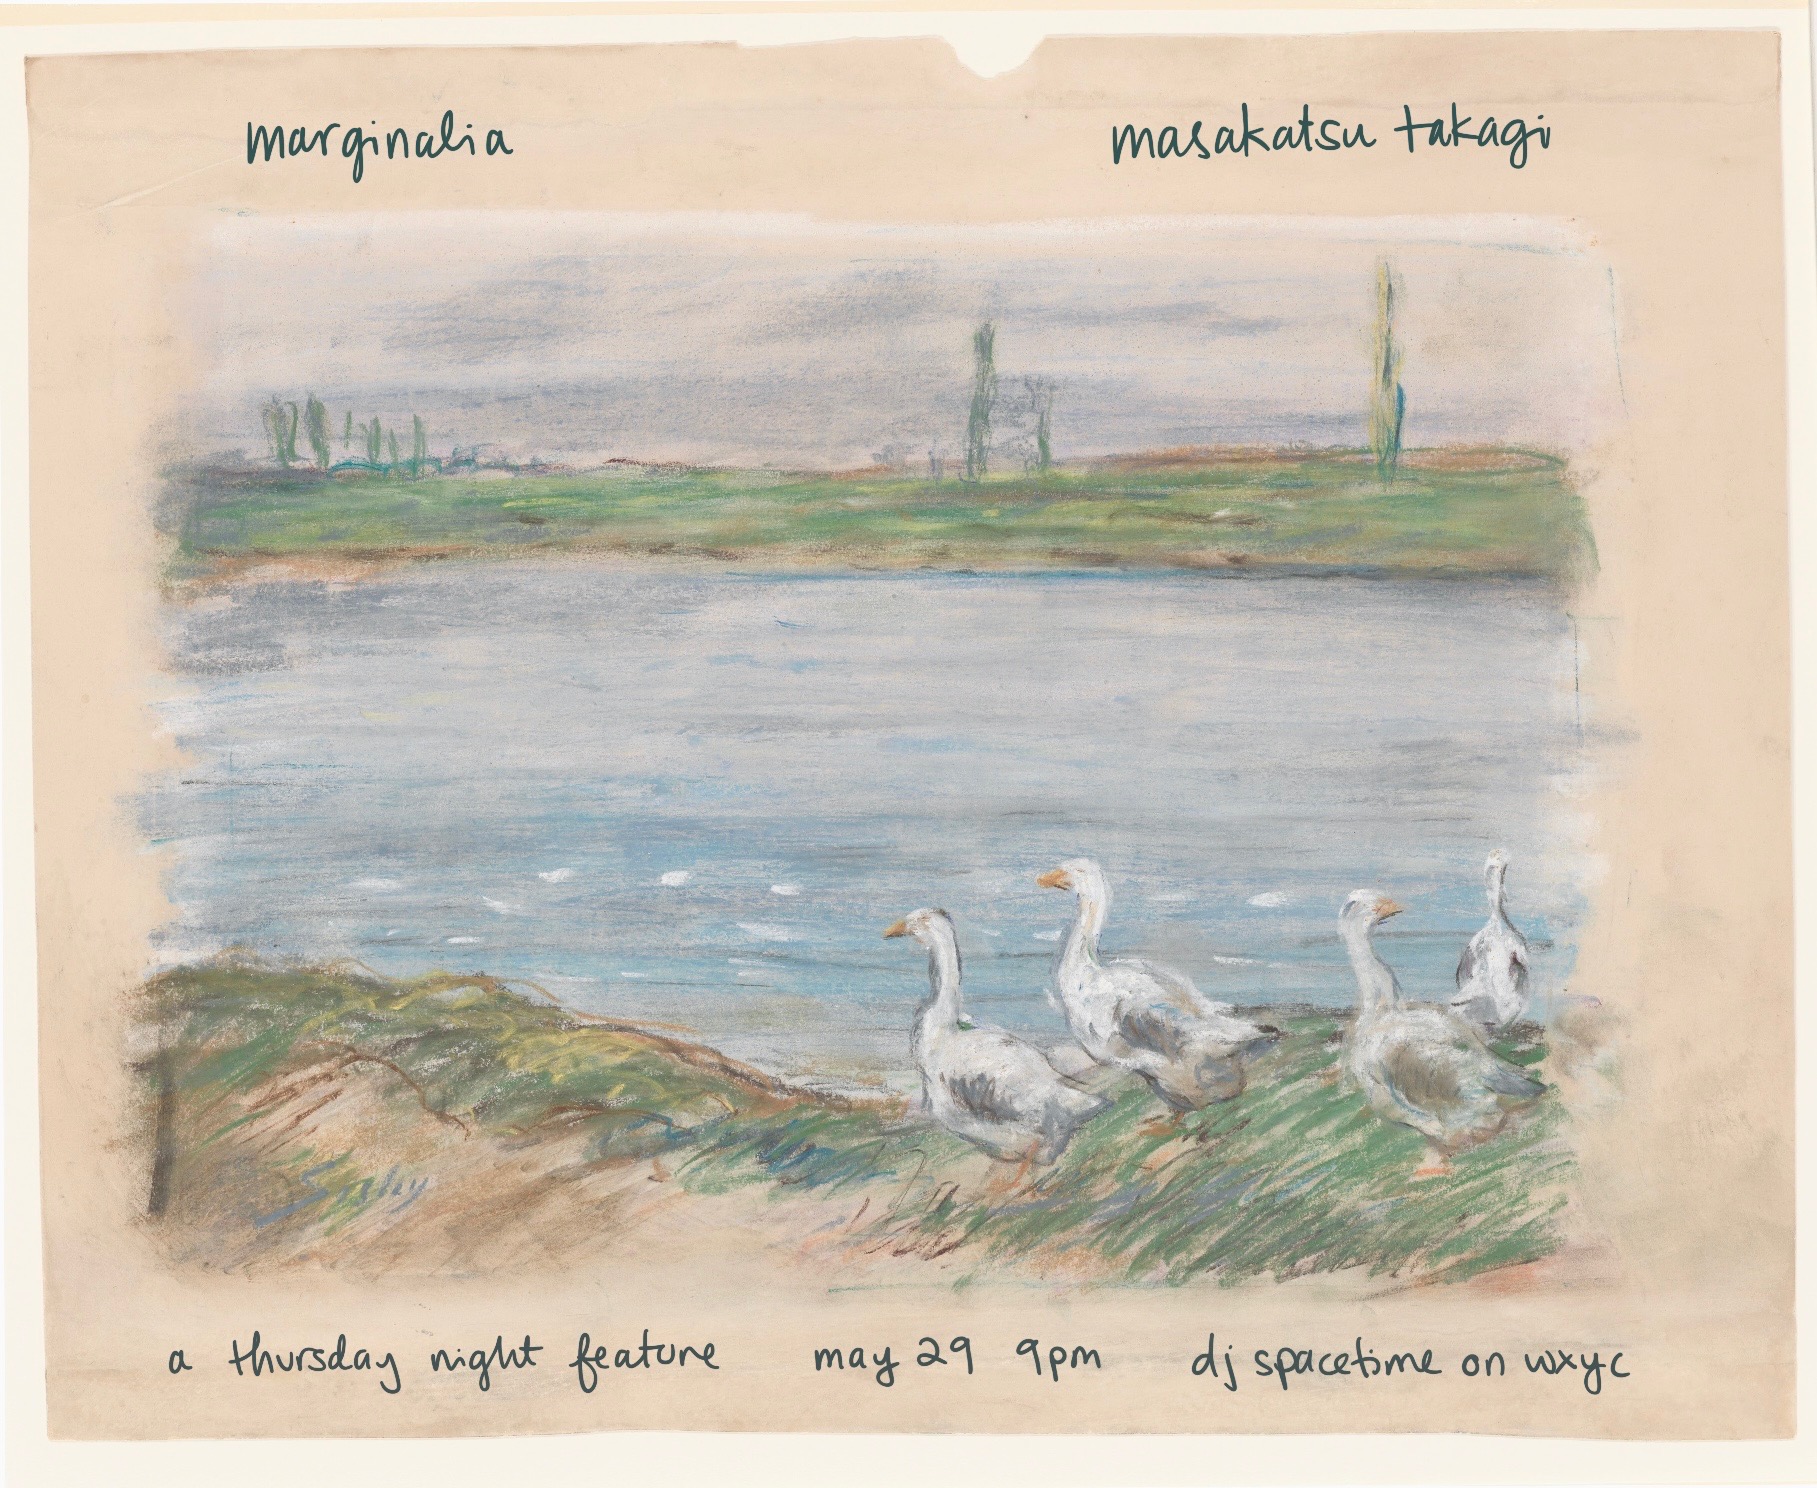 marginalia
masakatsu takagi
Sisley
a thursday night feature may 29 9pm dj spacetime on wxyc